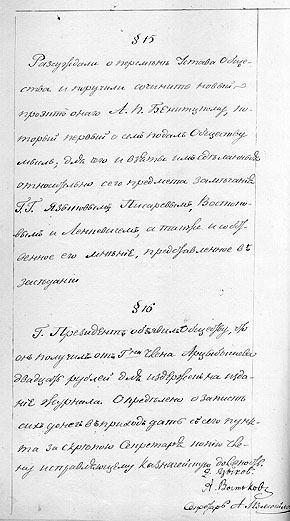 § 15
Разсуждали о перемѣнѣ Устава Общес-
тва и поручили сочинить новый
проэктъ онаго А. П. Бенитцкому, ко-
торый первый о семъ подалъ Обществу
мысль, для чего и взять имъ сдѣланныя
относительно сего предмета замѣчанія
Г.Г. Языковымъ Писаревымъ, Востоко-
вымъ и Ленкевичемъ а также и собст-
венное его мнѣніе, представленное въ
засѣданіи
§ 16
Г. Президентъ объявилъ Обществу, что
онъ получилъ отъ Г-на Члена Арцыбашева
двадцать рублей для издержекъ на изда-
ніе журнала. Опредѣлено о запискѣ
сихъ денегъ въ приходъ дать съ сего пунк-
та за скрѣпою Секретаря копію Чле-
ну исправляющему казначейскую должность.
Д. Языков
А. Востоков
Секретарь А. Измайлов